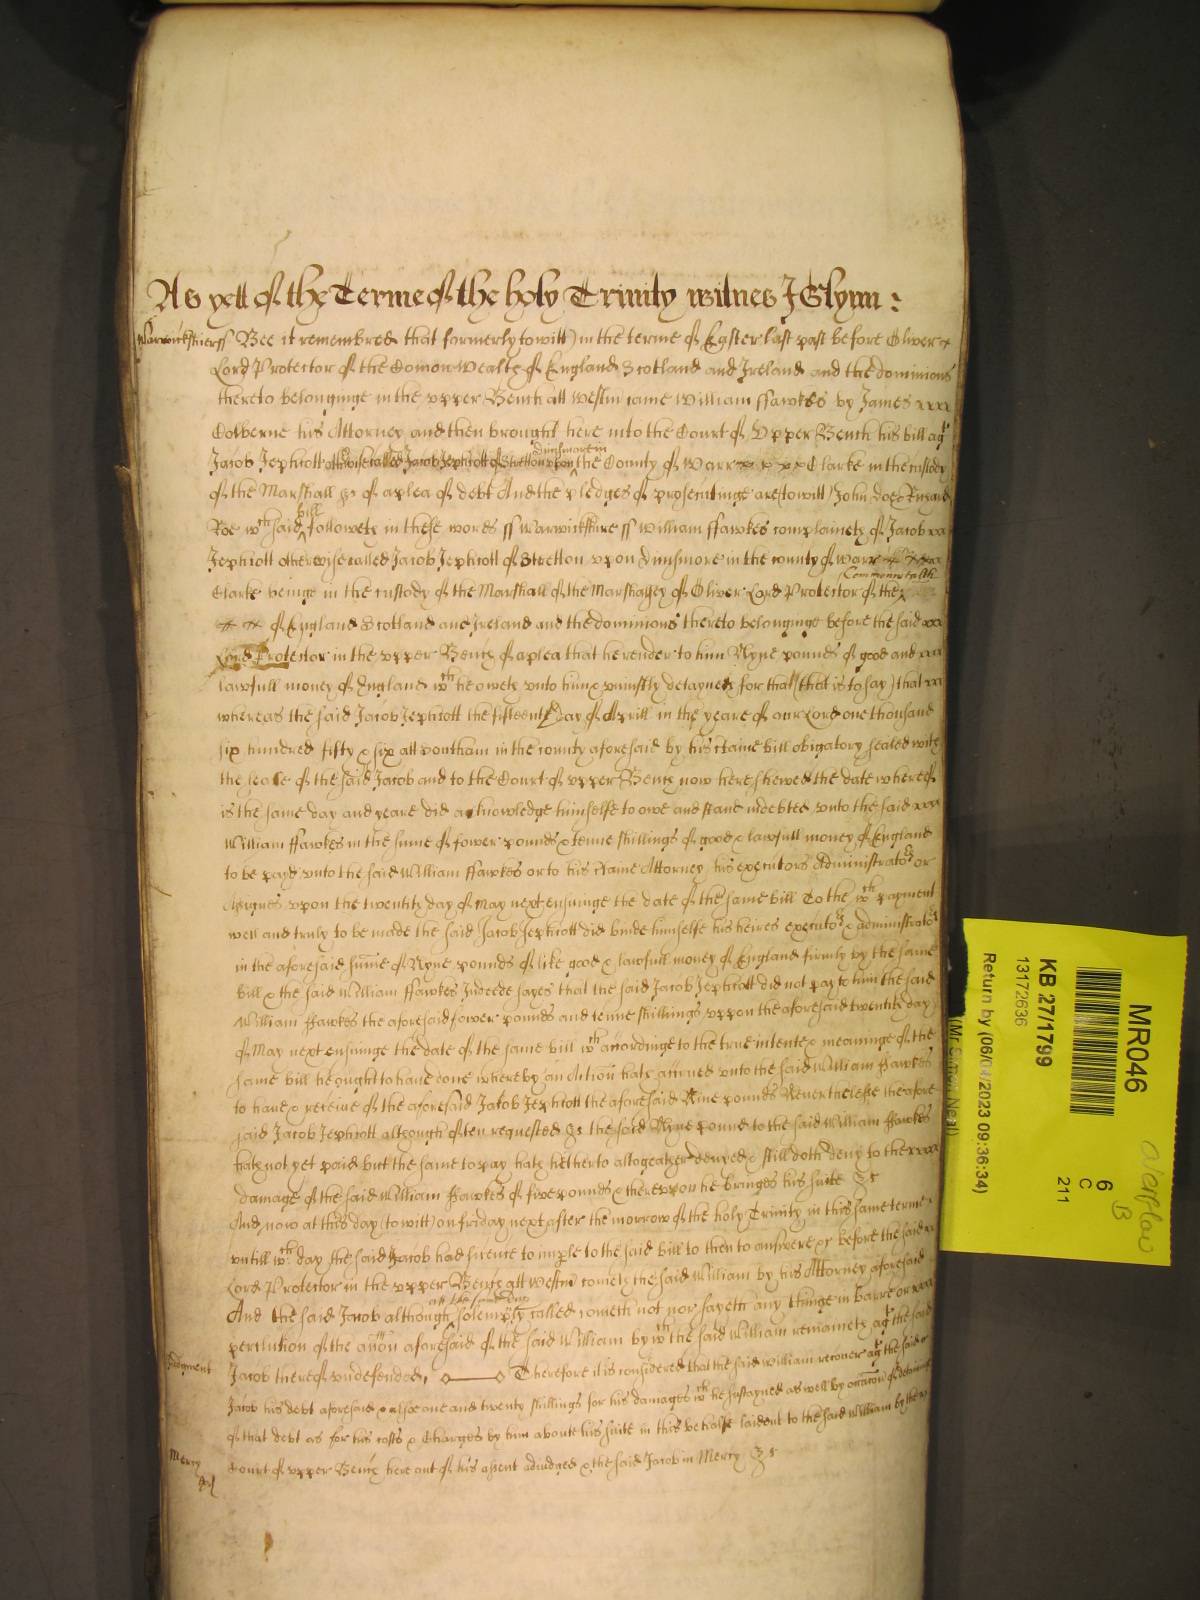 As yett of the Terme of the holy Trinity witnes J Glynn :
Warwickshierss Bee it remembred that formerly (to witt) in the terme of Easter last past before Oliver
Lord Protector of the Comon Wealth of England Scotland and Ireland and the dominions
thereto belonginge in the upper Bench att Westm came William ffawkes by James xxxx
Colberne his Attorney and then brought here into the Court of Upper Bench his bill agt
Jacob Jephcott otherwise called Jacob Jephcott of Stretton upon dunsmore in the County of Warr x x x x Clarke in the custody
of the Marshall &c of a plea of debt And the pledges of prosecutinge are (to witt) John doe & Richard
Roe wch said bill followeth in these words ss Warwickshire ss William ffawkes complaineth of Jacob xx
Jephcott otherwise called Jacob Jephcott of Stretton upon dunsmore in the county of Warr
Clarke beinge in the custody of the Marshall of the Marshalsey of Oliver Lord Protector of the Commonwealth
of England Scotland and Ireland and the dominions thereto belonginge before the said xxx
Lord Protector in the upper Bench of a plea that he render to him Nyne pounds of good and xxx
lawfull money of England wch he oweth unto him & uniustly detayneth for that (that is to say) that xx
whereas the said Jacob Jephcott the fifteenth day of Aprill in the yeare of our Lord one thousand
six hundred fifty & six att in the county aforesaid by his certaine bill obligatory sealed with
the seale of the said Jacob and to the Court of upper Bench now here shewed the date whereof
is the same day and yeare did acknowledge himselfe to owe and stand indebted unto the said xxxx
William ffawkes in the sume of fower pounds & tenne shillings of good & lawfull money of England
to be payd unto the said William ffawkes or to his certaine Attorney his executors Administrators or
Assignes upon the twentith day of May next ensuinge the date of the same bill To the wch payment
well and truly to be made the said Jacob Jephcott did binde himselfe his heires executors & administrators
in the aforesaid sume of Nyne pounds of like good & lawfull money of England firmly by the same
bill & the said William ffawkes indeede sayes that the said Jacob Jephcott did not pay to him the said
William ffawkes the aforesaid fower pounds and tenne shillings uppon the aforesaid twentith day
of May next ensuinge the date of the same bill wch accordinge to the true intente & meaninge of the
same bill he ought to have done whereby an Action hath accrued unto the said William ffawkes
to have & receive of the aforesaid Jacob Jephcott the aforesaid Nine pounds Neverthelesse the afore
said Jacob Jephcott although often requested &c the said Nyne pound to the said William ffawkes
hath not yet paid but the same to pay hath hetherto altogeather denyed & still doth deny to the xxxx
damage of the said William ffawkes of five pounds & thereupon he bringes his suite &c
And now at this day (to witt) on friday next after the morrow of the holy Trinity in this same terme
untill wch day the said Jacob had licence to imple to the said bill to then to answere &c before the said
Lord Protector in the upper Bench att Westm cometh the said William by his Attorney aforesaid
And the said Jacob although att the same day solemply called cometh not nor sayeth any thinge in barre or xxx
perclution of the accon aforesaid of the said William by wch the said William remaineth agt the said
Judgment Jacob thereof undefended, Therefore it is considered that the said William recover agt the said
Jacob his debt aforesaid & alsoe one and twenty shillings for his damages wch he sustayned as well by occacon of detaininge
of that debt as for his costs & Charges by him about his suite in this behalfe laid out to the said William by the
Mercy Court of upper Bench here out of his assent adiudged & the said Jacob in Mercy &c
MR046
6
C
211
B
KB 27/1799
13172636
Return by (06/04/2023 09:36:34)
(Mr Simon Neal)